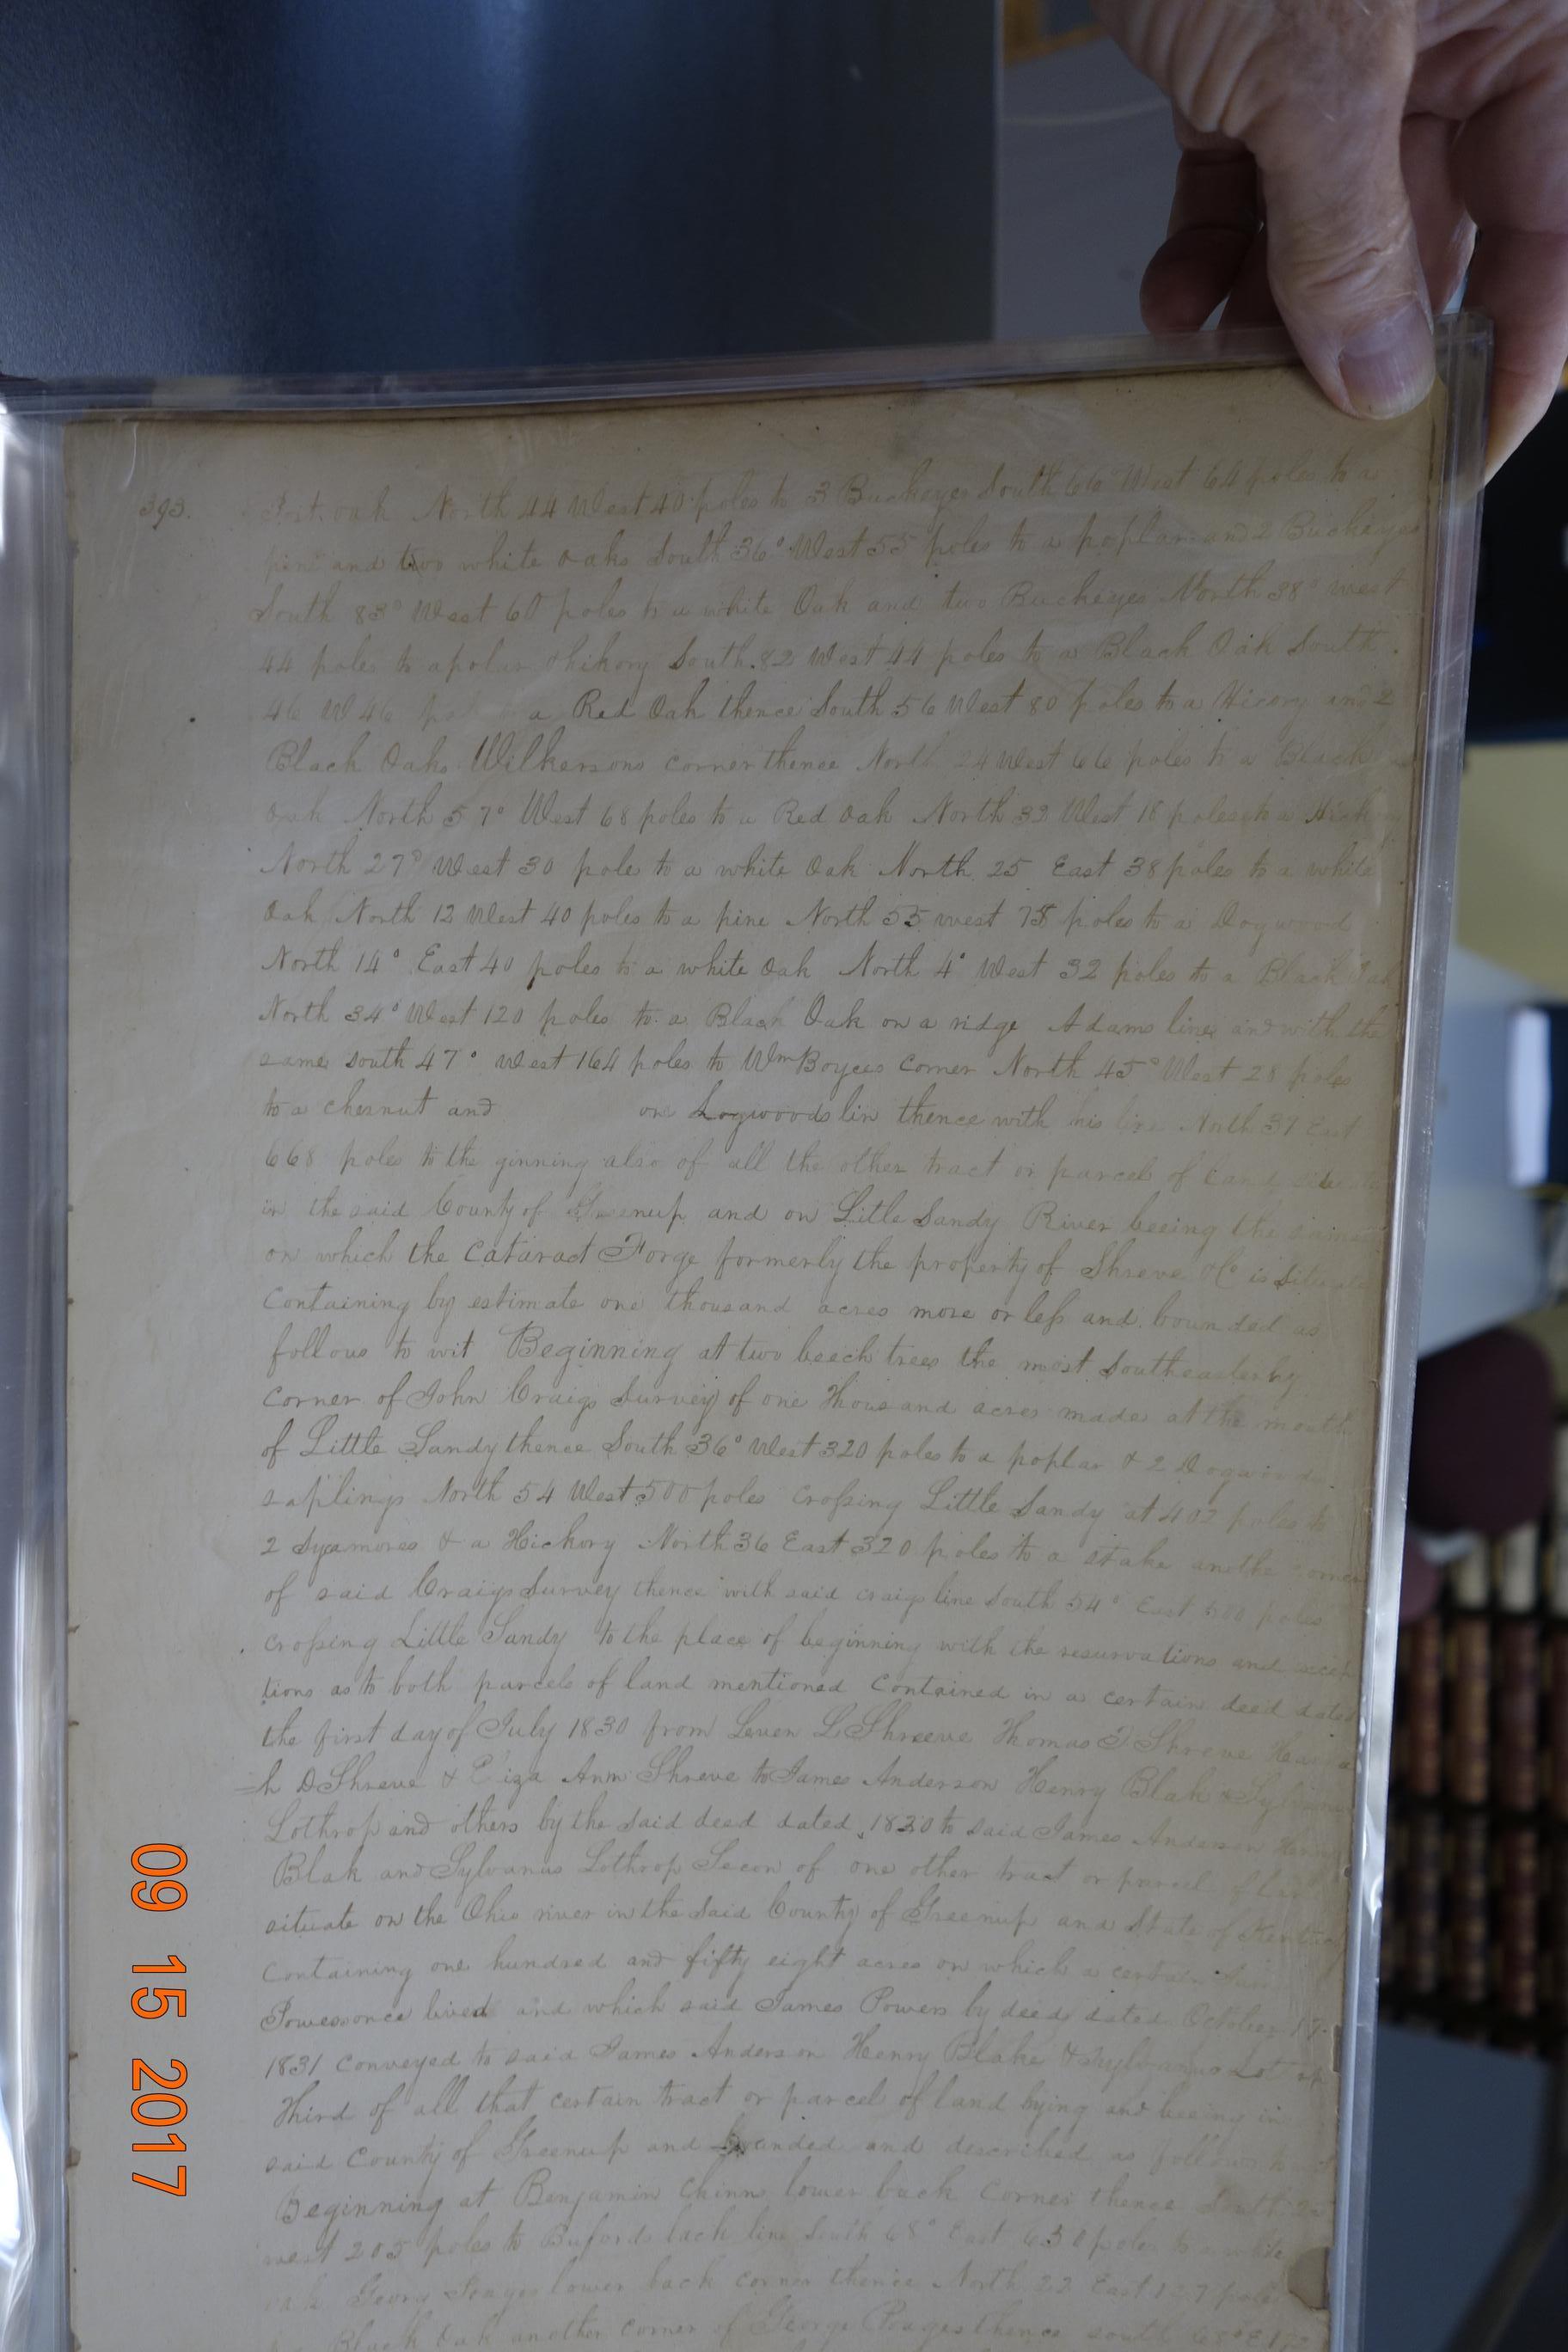 393.
Post oak North 44 West 40 poles to 3 Buckeyes South 66 West 64 poles to a
pine and two white oaks South 36° West 55 poles to a poplar and 2 Buckeyes
South 83° West 60 poles to a white Oak and two Buckeyes North 38° west
44 poles to a polar & hikory South 82 West 44 poles to a Black Oak South
46 W 46 a Red Oak thence South 56 West 80 poles to a Hicory and 2
Black Oaks Wilkersons corner thence North 24 West 66 poles to a Black
oak North 57° West 68 poles to a Red Oak North 32 West 18 poles to a
North 27° West 30 pole to a white Oak North 25 East 38 poles to a white
Oak North 12 West 40 poles to a pine North 55 west 78 poles to a Dogwood
North 14° East 40 poles to a white Oak North 4° West 32 poles to a Black Oak
North 34° West 120 poles to a Black Oak on a ridge Adams line and with the
same south 47° west 164 poles to Wm Boyces corner North 45° West 28 poles
to a chesnut and on Logwoods lin thence with his line North 37 East
668 poles to the ginning also of all the other tract or parcel of land
in the said County of Greenup and on Litle Sandy River beeing the same
on which the Cataract Forge formerly the property of Shreve & Co is
Containing by estimate one thousand acres more or less and bounded as
follows to wit Beginning at two beech trees the most Southeasterly
corner of John Craigs Survey of one Thousand acres made at the mouth
of Little Sandy thence South 36° West 320 poles to a poplar & 2 Dogwood
saplings North 54 West 500 poles Crossing Little Sandy at 402 poles to
2 Sycamores & a Hickory North 36 East 320 poles to a stake anothe corner
of said Craigs Survey thence with said craigs line South 54° East 500 poles
crossing Little Sandy to the place of beginning with the resurvations and
tions as to both parcels of land mentioned Contained in a certain deed dated
the first day of July 1830 from Leven L Shreeve Thomas T Shreve
=h D Shreve & Eliza Ann Shreve to James Anderson Henry Blak &
Lothrop and others by the said deed dated 1830 to said James Anderson Henry
Blak and Sylvanus Lothrop Secon of one other tract or parcel of land
situate on the Ohio river in the said County of Greenup and State of Kentucky
Containing one hundred and fifty eight acres on which a certain
Powers once lived and which said James Powers by deed dated October 17
1831 conveyed to said James Anderson Henry Blake &
Third of all that certain tract or parcel of land lying and beeing in
said County of Greenup and bounded and described as follows to
Beginning at Benjamin Chinns lower back corner thence South
west 205 poles to Bufords back line South 68° East 630 poles to a white
oak Georg lower back corner thence North 22 East 127 poles
Black Oak another corner of George thence south 68°
09 15 2017